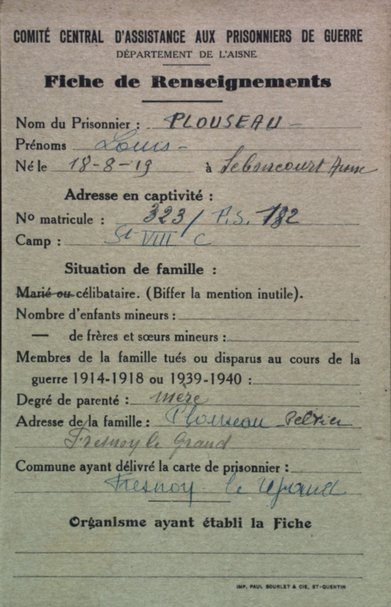 COMITÉ CENTRAL D'ASSISTANCE AUX PRISONNIERS DE GUERRE
DÉPARTEMENT DE L'AISNE
Fiche de Renseignements
Nom du Prisonnier : PLOUSEAU -
Prénoms Louis -
Né le 18-8-19 à Seboncourt Aisne
Adresse en captivité :
No matricule : 323 / P.S. 182
Camp : St VIII C
Situation de famille :
Marié ou célibataire. (Biffer la mention inutile).
Nombre d'enfants mineurs :
— de frères et sœurs mineurs :
Membres de la famille tués ou disparus au cours de la
guerre 1914-1918 ou 1939-1940 :
Degré de parenté : mère
Adresse de la famille : Plouseau Peltier
Fresnoy le Grand
Commune ayant délivré la carte de prisonnier :
Fresnoy le Grand
Organisme ayant établi la Fiche
IMP. PAUL BOURLET & CIE, ST-QUENTIN